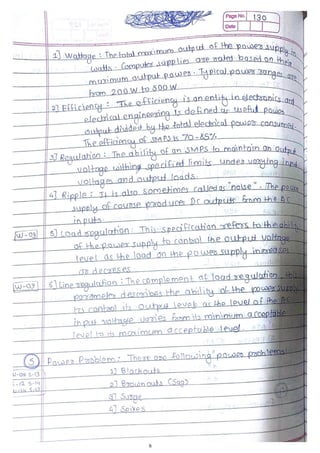 Page No. 130
Date
1] Wattage : The total maximum output of the power supply in
watts. Computer supplies are rated based on their
maximum output power. Typical power ranges are
from 200W to 500W
2] Efficiency : The efficiency is an entity in electronics and
electrical engineering is defined as useful power
output divided by the total electrical power consumed
The efficiency of SMPS is 70-85%
3] Regulation : The ability of an SMPS to maintain an output
voltage within specified limits under varying input
voltages and output loads.
4] Ripple : It is also sometimes called as "noise". The power
supply of course produces DC outputs from the AC
inputs.
5] Load regulation : This specification refers to the ability
of the power supply to control the output voltage
level as the load on the power supply increases
or decreses.
6] Line regulation : The complement of load regulation, this
parameter describes the ability of the power supply
to control its output levels as the level of the AC
input voltage varies from its minimum acceptable
level to its maximum acceptable level.
5 Power Problem : There are following power problems
1] Blackouts
2] Brownouts (Sag)
3] Surge
4] Spikes